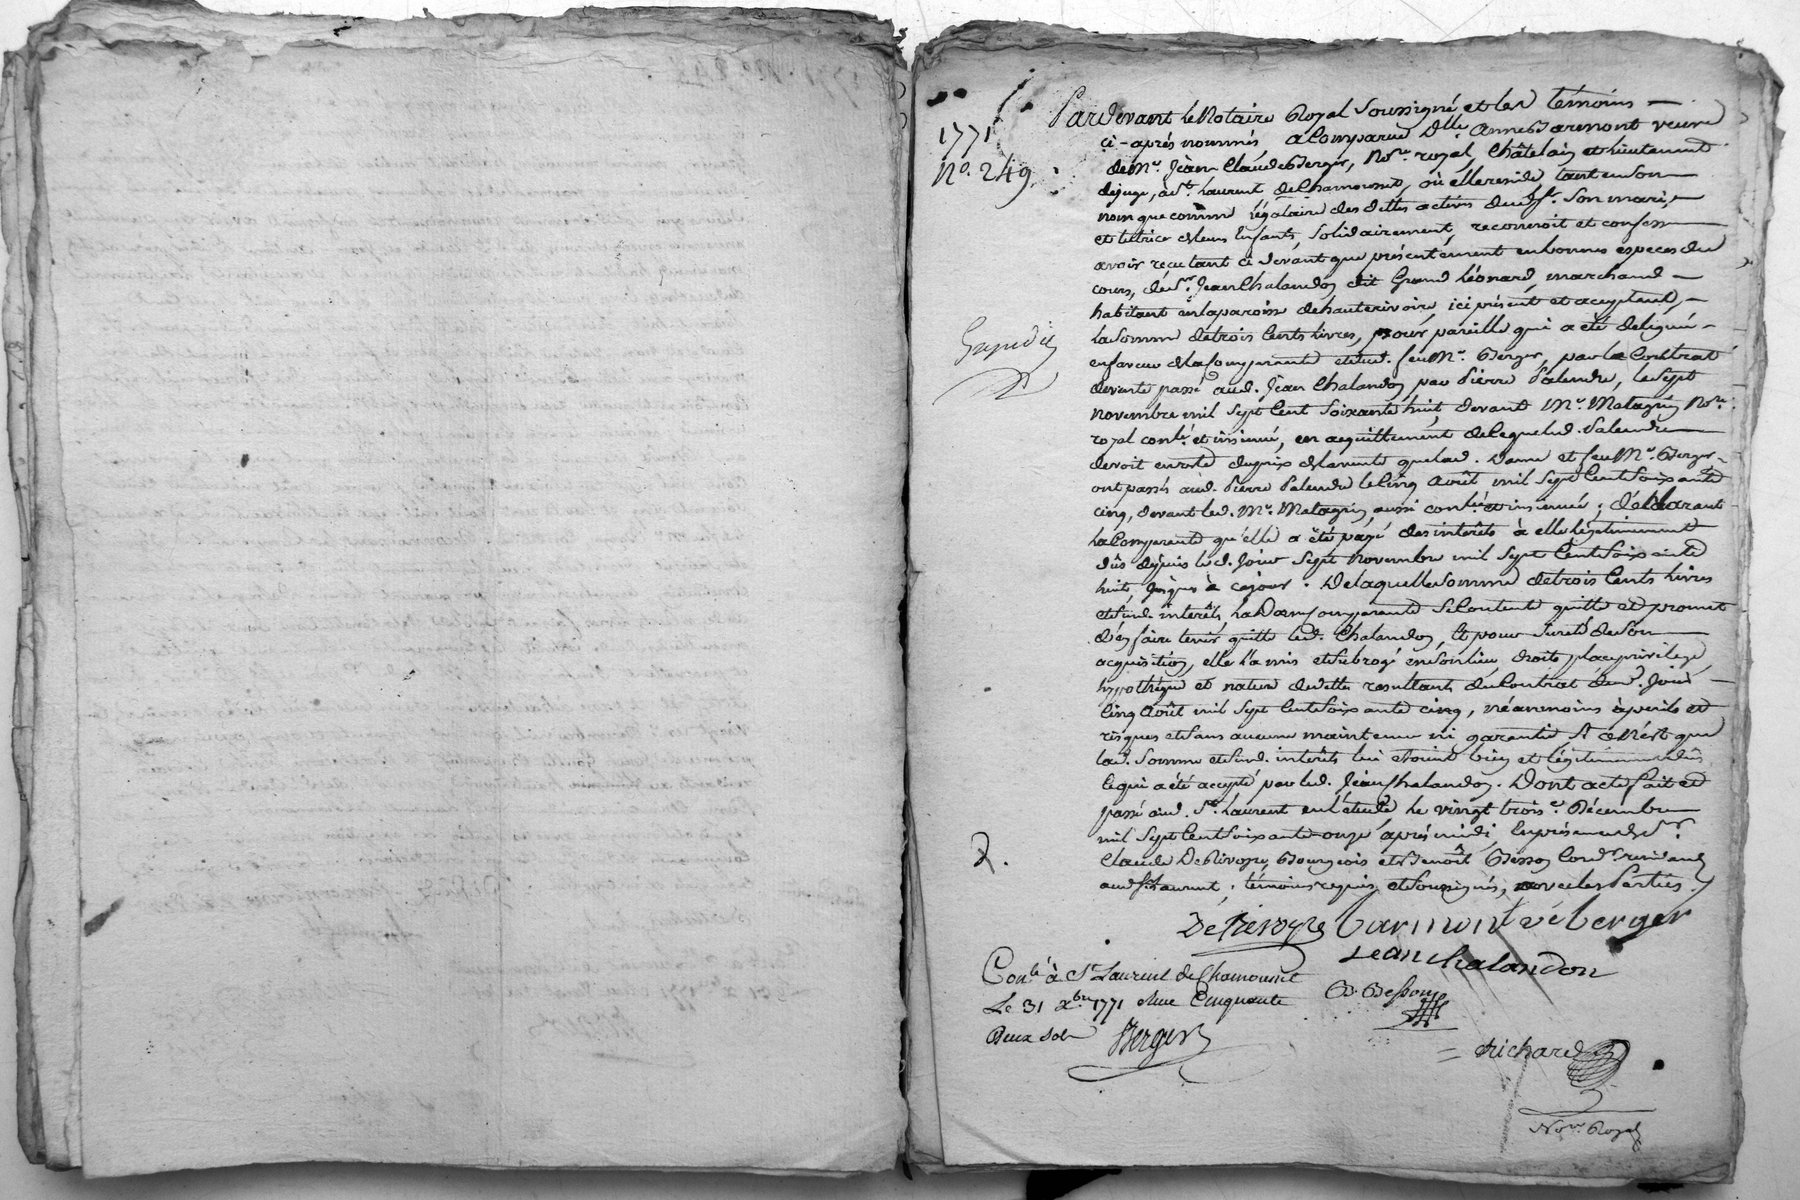 1771
N.o 249
Pardevant le Notaire Royal soussigné et les témoins
ci-après nommés, a Comparue Dlle. anne Barmont veuve
de Me. Jean Claude Berger, Nore. royal, Châtelain et lieutenant
de juge, à St. Laurent de Chamousset, où elle reside tant en son
nom que comme légataire des dettes actives dud. Sr. son mari,
et tutrice de leurs Enfants, solidairement, reconnoit et confesse
avoir recu tant ci devant que présentement en bonnes especes du
cours, de Sr. Jean Chalandon dit Grand Léonard, marchand
habitant en la paroisse de hauterivoire, ici présent et acceptant,
la somme de trois Cents livres, pour pareille qui a été deléguée
en faveur de la Comparante et dud. feu Me. Berger, par le Contrat
de vente passé aud. Jean Chalandon par Pierre Palendre, le sept
Novembre mil sept Cent soixante huit, devant Me. Matagrin Nore.
royal conlé. et insinué, en acquittement de ce que led. Palendre
devoit en reste du prix de la vente que lad. Dame et feu Me. Berger
ont passés aud. Pierre Palendre le Cinq Août mil sept Cent soixante
cinq, devant led. Me. Matagrin, aussi conlé. et insinué ; déclarant
la Comparante qu'elle a été payé des intérêts à elle légitimement
dûs depuis led. jour sept Novembre mil sept Cent soixante
huit, jusques à ce jour. De laquelle somme de trois Cents livres
et sud. intérêts, la Dame Comparante se Contente quitte et promet
d'en faire tenir quitte led. Chalandon, et pour sureté de son
acquisition, elle l'a mis et subrogé en son lieu, droits, place, privilege,
hypothèque et nature de dette resultants du Contrat dud. jour
Cinq Août mil sept Cent soixante cinq, néanmoins à perils et
risques et sans aucune maintenue ni garantie si ce n'est que
lad. somme et sud. intérêts lui étoient bien et légitimement dûs
ce qui a été accepté par led. Jean Chalandon. Dont acte fait et
passé aud. St. Laurent en l'étude, le vingt troise. Décembre
mil sept Cent soixante-onze après midi, en présence de Sr.
Claude De Rivoyre, Bourgeois et Benoît Besson Cordr. residants
aud. St. Laurent, témoins requis, et soussignés, avec les Parties.
De Rivoyre barmont vé berger
Jean chalandon
B. Besson
Conlé à St Laurent de Chamousset
Le 31 Xbre 1771 Reçu Cinquante
Deux sols Berger
richard
Nore. Royal